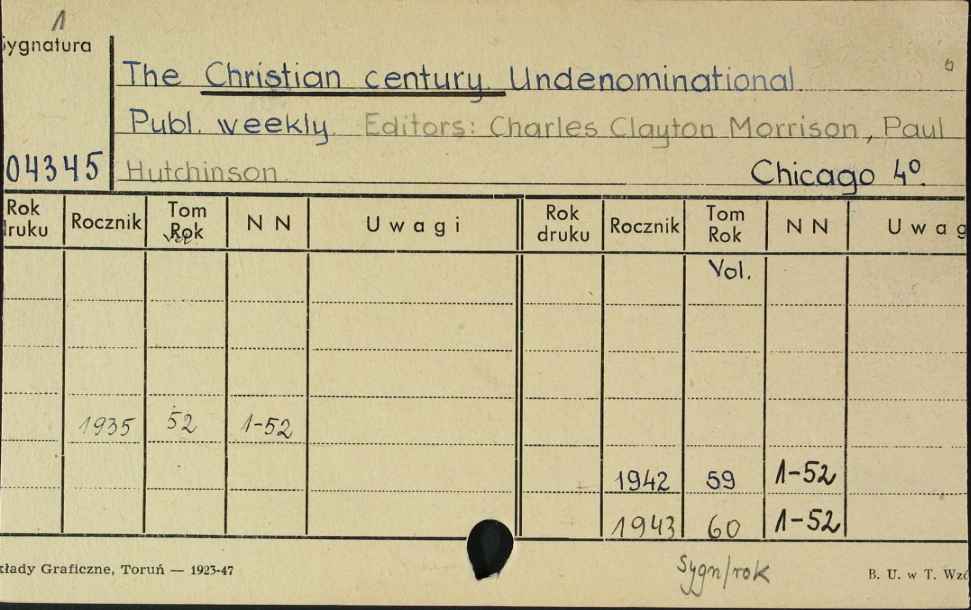 1
Sygnatura
The Christian century. Undenominational.
Publ. weekly. Editors: Charles Clayton Morrison, Paul
04345 Hutchinson. Chicago 4º.
Rok druku Rocznik Tom Rok N N Uwagi Rok druku Rocznik Tom Rok N N Uwag
Vol.
1935 52 1-52
1942 59 1-52
1943 60 1-52
kłady Graficzne, Toruń — 1923-47 Sygn/rok B. U. w T. Wzó